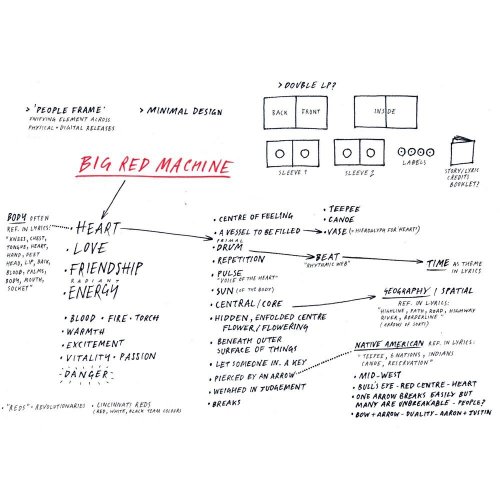 > DOUBLE LP?
> 'PEOPLE FRAME'
UNIFYING ELEMENT ACROSS
PHYSICAL + DIGITAL RELEASES
> MINIMAL DESIGN
BACK FRONT
INSIDE
SLEEVE 1
SLEEVE 2
LABELS
STORY/LYRIC
CREDITS
BOOKLET?
BIG RED MACHINE
BODY OFTEN
REF. IN LYRICS:
"KNEES, CHEST,
TONGUE, HEART,
HAND, FEET
HEAD, LIP, BACK,
BLOOD, PALMS,
BODY, MOUTH,
SOCKET"
• HEART
• LOVE
• FRIENDSHIP
RADIANT
• ENERGY
• BLOOD • FIRE • TORCH
• WARMTH
• EXCITEMENT
• VITALITY • PASSION
• DANGER
• "REDS" = REVOLUTIONARIES
• CINCINNATI REDS
(RED, WHITE, BLACK TEAM COLOURS)
• CENTRE OF FEELING
• A VESSEL TO BE FILLED
PRIMAL
• DRUM
• REPETITION
• PULSE
"VOICE OF THE HEART"
• SUN (OF THE BODY)
• CENTRAL/CORE
• HIDDEN, ENFOLDED CENTRE
FLOWER/FLOWERING
• BENEATH OUTER
SURFACE OF THINGS
• LET SOMEONE IN. A KEY
• PIERCED BY AN ARROW
• WEIGHED IN JUDGEMENT
• BREAKS
• TEEPEE
• CANOE
• VASE (= HIEROGLYPH FOR HEART)
• BEAT
"RHYTHMIC WEB"
TIME AS THEME
IN LYRICS
GEOGRAPHY / SPATIAL
REF. IN LYRICS:
"HIGHLINE, PATH, ROAD, HIGHWAY
RIVER, BORDERLINE"
(ARROW OF SORTS)
NATIVE AMERICAN REF. IN LYRICS:
"TEEPEE, 6 NATIONS, INDIANS
CANOE, RESERVATION"
• MID-WEST
• BULL'S EYE - RED CENTRE - HEART
• ONE ARROW BREAKS EASILY BUT
MANY ARE UNBREAKABLE - PEOPLE?
• BOW + ARROW - DUALITY - AARON + JUSTIN